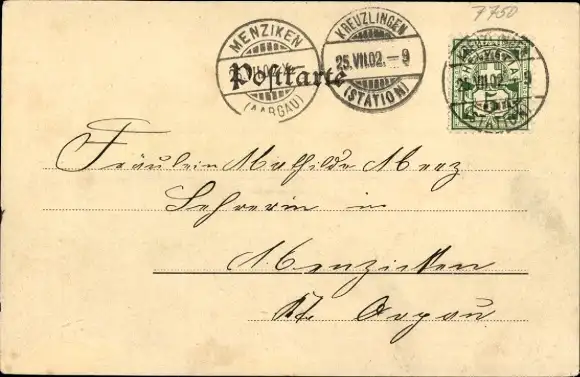 7750
MENZIKEN
(AARGAU)
KREUZLINGEN
25.VII.02.-9
(STATION)
Postkarte
Fräulein Mathilde Merz
Lehrerin in
Menziken
Kt. Aargau